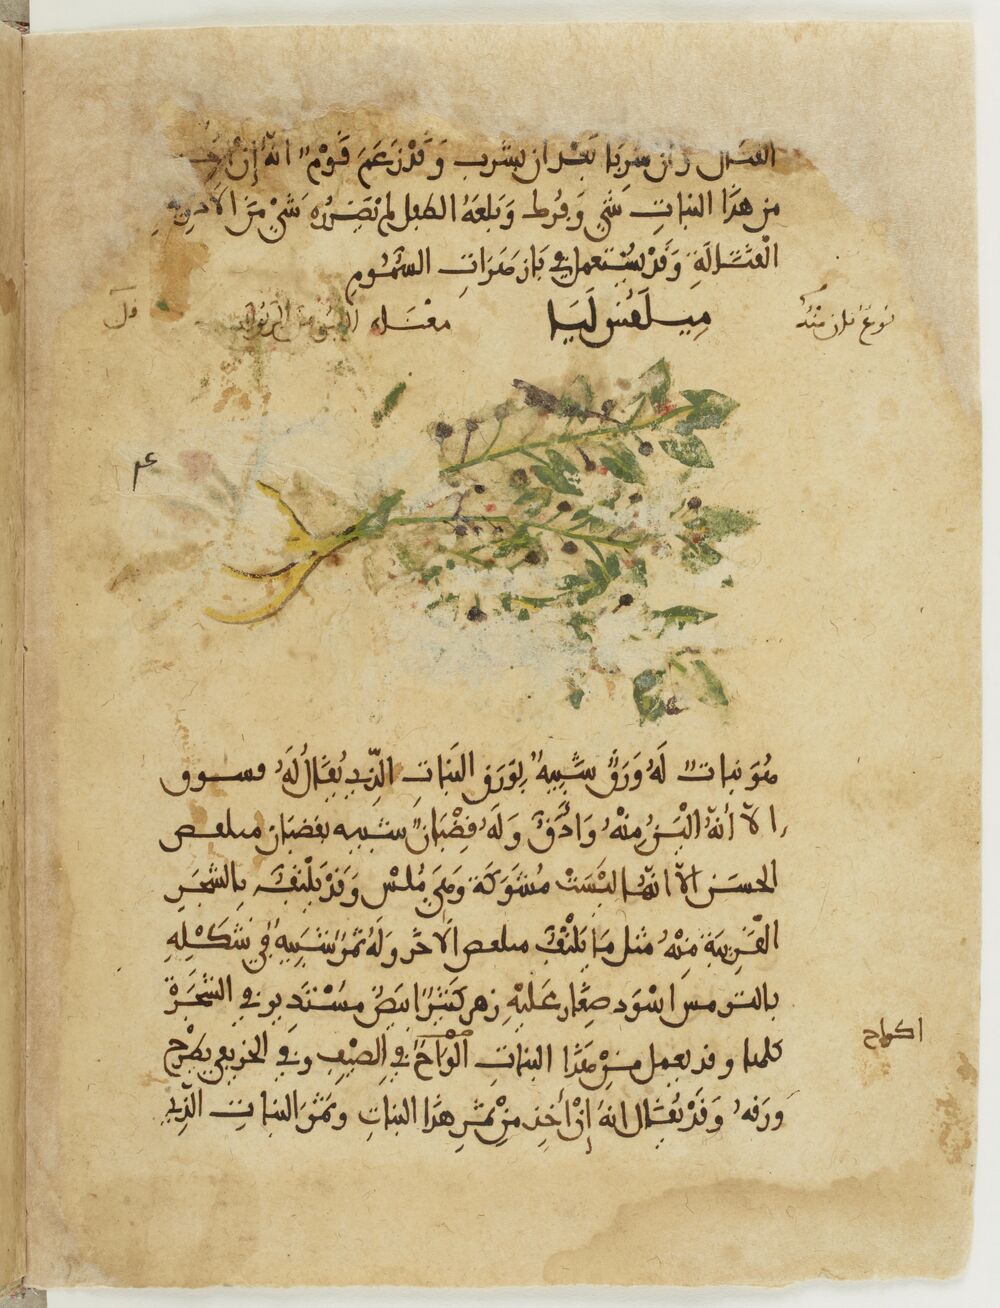 القتال وان شربا بعد ان يشرب وقد زعم قوم انه إن أخذ
من هذا النبات شي وفرط وبلعه الطفل لم تضرره شي من الادوية
القتالة وقد يستعمل في باذ صرات السموم
ميلقس ليا
نوع ثان منه
معناه
هو نبات له ورق شبيه بورق النبات الذي يقال له قسوس
الا أنه الين منه وادق وله قضبان شبيه بقضبان ميلقس
الخشن الا انها ليست مشوكة وهي ملس وقد يلتف بالشجر
القريبة منه مثل ما يلتف ميلقس الاخر وله ثمر شبيه في شكله
بالترمس اسود صغار عليه زهر كثير ابيض مستدير في الشجرة
كلها وقد يعمل من هذا النبات الواح في الصيف وفي الخريف يطرح
اكواح
ورقه وقد يقال انه إن أخذ من ثمر هذا النبات وثمر النبات الذي